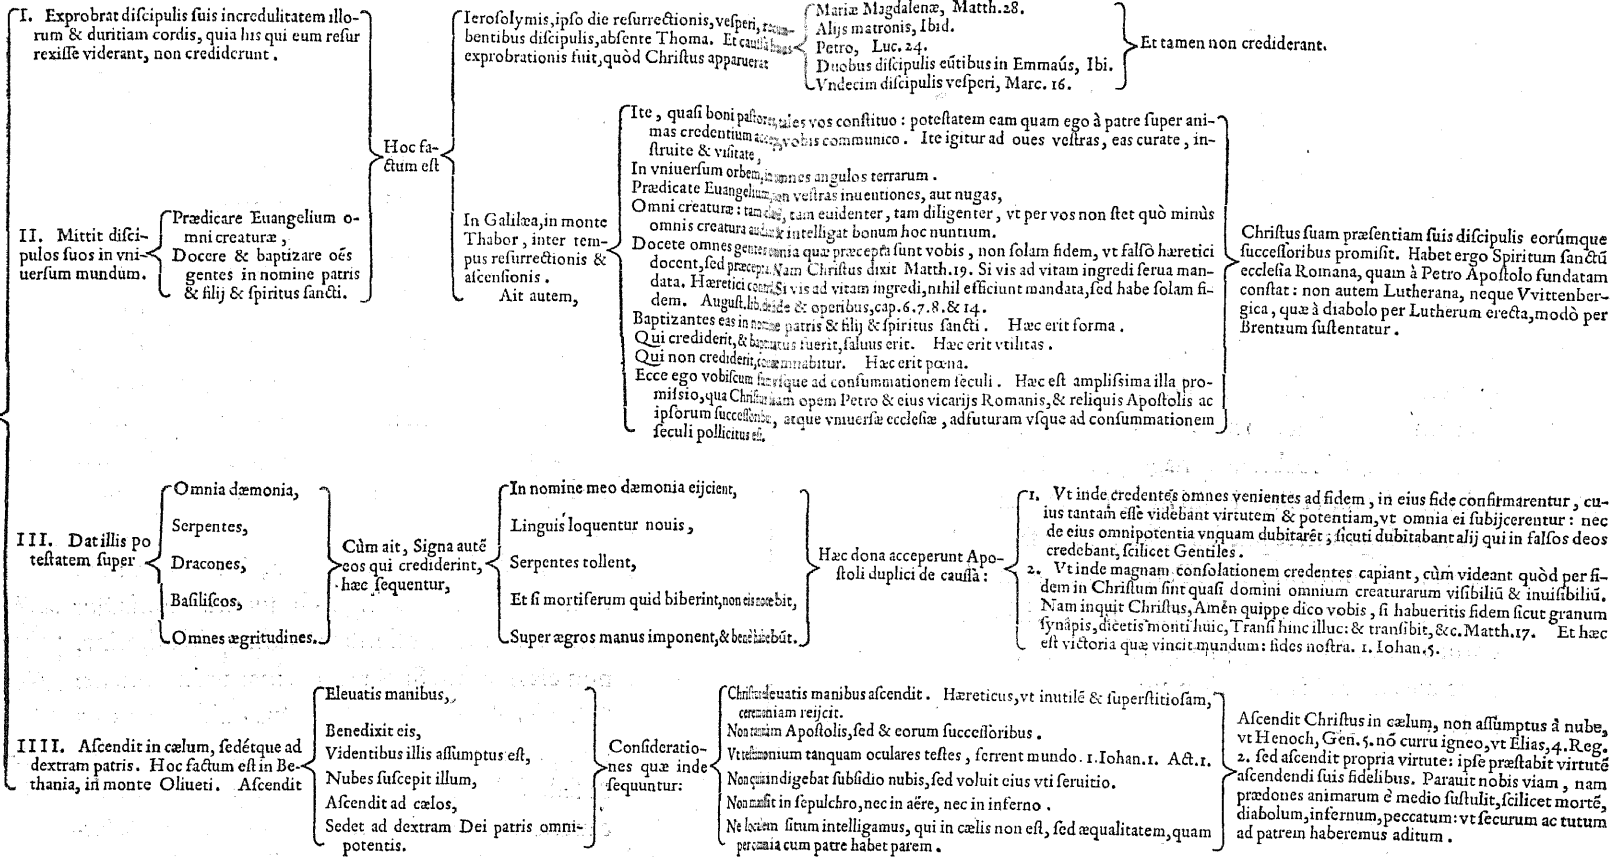 I. Exprobrat diſcipulis ſuis incredulitatem illo-
rum & duritiam cordis, quia his qui eum reſur
rexiſſe viderant, non crediderunt.
Hoc fa-
ctum eſt
Ieroſolymis, ipſo die reſurrectionis, veſperi,
bentibus diſcipulis, abſente Thoma. Et cauſſa huius
exprobrationis fuit, quòd Chriſtus apparuerat
Mariæ Magdalenæ, Matth. 28.
Alijs matronis, Ibid.
Petro, Luc. 24.
Duobus diſcipulis eũtibus in Emmaús, Ibi.
Vndecim diſcipulis veſperi, Marc. 16.
Et tamen non crediderant.
II. Mittit diſci-
pulos ſuos in vni-
uerſum mundum.
Prædicare Euangelium o-
mni creaturæ,
Docere & baptizare oẽs
gentes in nomine patris
& filij & ſpiritus ſancti.
In Galilæa, in monte
Thabor, inter tem-
pus reſurrectionis &
aſcenſionis.
Ait autem,
Ite, quaſi boni paſtores, tales vos conſtituo: poteſtatem eam quam ego à patre ſuper ani-
mas credentium vobis communico. Ite igitur ad oues veſtras, eas curate, in-
ſtruite & viſitate,
In vniuerſum orbem, in omnes angulos terrarum.
Prædicate Euangelium, non veſtras inuentiones, aut nugas,
Omni creaturæ: tam euidenter, tam diligenter, vt per vos non ſtet quò minùs
omnis creatura audiat & intelligat bonum hoc nuntium.
Docete omnes gentes omnia quæ præcepta ſunt vobis, non ſolam fidem, vt falſò hæretici
docent, ſed præcepta. Nam Chriſtus dixit Matth. 19. Si vis ad vitam ingredi ſerua man-
data. Hæretici contra, Si vis ad vitam ingredi, nihil efficiunt mandata, ſed habe ſolam fi-
dem. Auguſt. lib. de fide & operibus, cap. 6. 7. 8. & 14.
Baptizantes eas in nomine patris & filij & ſpiritus ſancti. Hæc erit forma.
Qui crediderit, & baptizatus fuerit, ſaluus erit. Hæc erit vtilitas.
Qui non crediderit, condemnabitur. Hæc erit pœna.
Ecce ego vobiſcum ſum vſque ad conſummationem ſeculi. Hæc eſt ampliſſima illa pro-
miſsio, qua Chriſtus ſuam opem Petro & eius vicarijs Romanis, & reliquis Apoſtolis ac
ipſorum ſucceſſoribus, atque vniuerſæ eccleſiæ, adfuturam vſque ad conſummationem
ſeculi pollicitus eſt.
Chriſtus ſuam præſentiam ſuis diſcipulis eorúmque
ſucceſſoribus promiſit. Habet ergo Spiritum ſanctũ
eccleſia Romana, quam à Petro Apoſtolo fundatam
conſtat: non autem Lutherana, neque Vvittenber-
gica, quæ à diabolo per Lutherum erecta, modò per
Brentium ſuſtentatur.
III. Dat illis po
teſtatem ſuper
Omnia dæmonia,
Serpentes,
Dracones,
Baſiliſcos,
Omnes ægritudines.
Cùm ait, Signa autẽ
eos qui crediderint,
hæc ſequentur,
In nomine meo dæmonia eijcient,
Linguis loquentur nouis,
Serpentes tollent,
Et ſi mortiferum quid biberint, non eis nocebit,
Super ægros manus imponent, & benè habebũt.
Hæc dona acceperunt Apo-
ſtoli duplici de cauſſa:
1. Vt inde credentes omnes venientes ad fidem, in eius fide confirmarentur, cu-
ius tantam eſſe videbant virtutem & potentiam, vt omnia ei ſubijcerentur: nec
de eius omnipotentia vnquam dubitarẽt; ſicuti dubitabant alij qui in falſos deos
credebant, ſcilicet Gentiles.
2. Vt inde magnam conſolationem credentes capiant, cùm videant quòd per fi-
dem in Chriſtum ſint quaſi domini omnium creaturarum viſibiliũ & inuiſibiliũ.
Nam inquit Chriſtus, Amẽn quippe dico vobis, ſi habueritis fidem ſicut granum
ſynapis, dicetis monti huic, Tranſi hinc illuc: & tranſibit, &c. Matth. 17. Et hæc
eſt victoria quæ vincit mundum: fides noſtra. 1. Iohan. 5.
IIII. Aſcendit in cælum, ſedétque ad
dextram patris. Hoc factum eſt in Be-
thania, in monte Oliueti. Aſcendit
Eleuatis manibus,
Benedixit eis,
Videntibus illis aſſumptus eſt,
Nubes ſuſcepit illum,
Aſcendit ad cælos,
Sedet ad dextram Dei patris omni-
potentis.
Conſideratio-
nes quæ inde
ſequuntur:
Chriſtus eleuatis manibus aſcendit. Hæreticus, vt inutilẽ & ſuperſtitioſam,
ceremoniam reijcit.
Non tantùm Apoſtolis, ſed & eorum ſucceſſoribus.
Vt teſtimonium tanquam oculares teſtes, ferrent mundo. 1. Iohan. 1. Act. 1.
Non quia indigebat ſubſidio nubis, ſed voluit eius vti ſeruitio.
Non manſit in ſepulchro, nec in aëre, nec in inferno.
Ne localem ſitum intelligamus, qui in cælis non eſt, ſed æqualitatem, quam
per omnia cum patre habet parem.
Aſcendit Chriſtus in cælum, non aſſumptus à nube,
vt Henoch, Gen. 5. nõ curru igneo, vt Elias, 4. Reg.
2. ſed aſcendit propria virtute: ipſe præſtabit virtutẽ
aſcendendi ſuis fidelibus. Parauit nobis viam, nam
prædones animarum è medio ſuſtulit, ſcilicet mortẽ,
diabolum, infernum, peccatum: vt ſecurum ac tutum
ad patrem haberemus aditum.